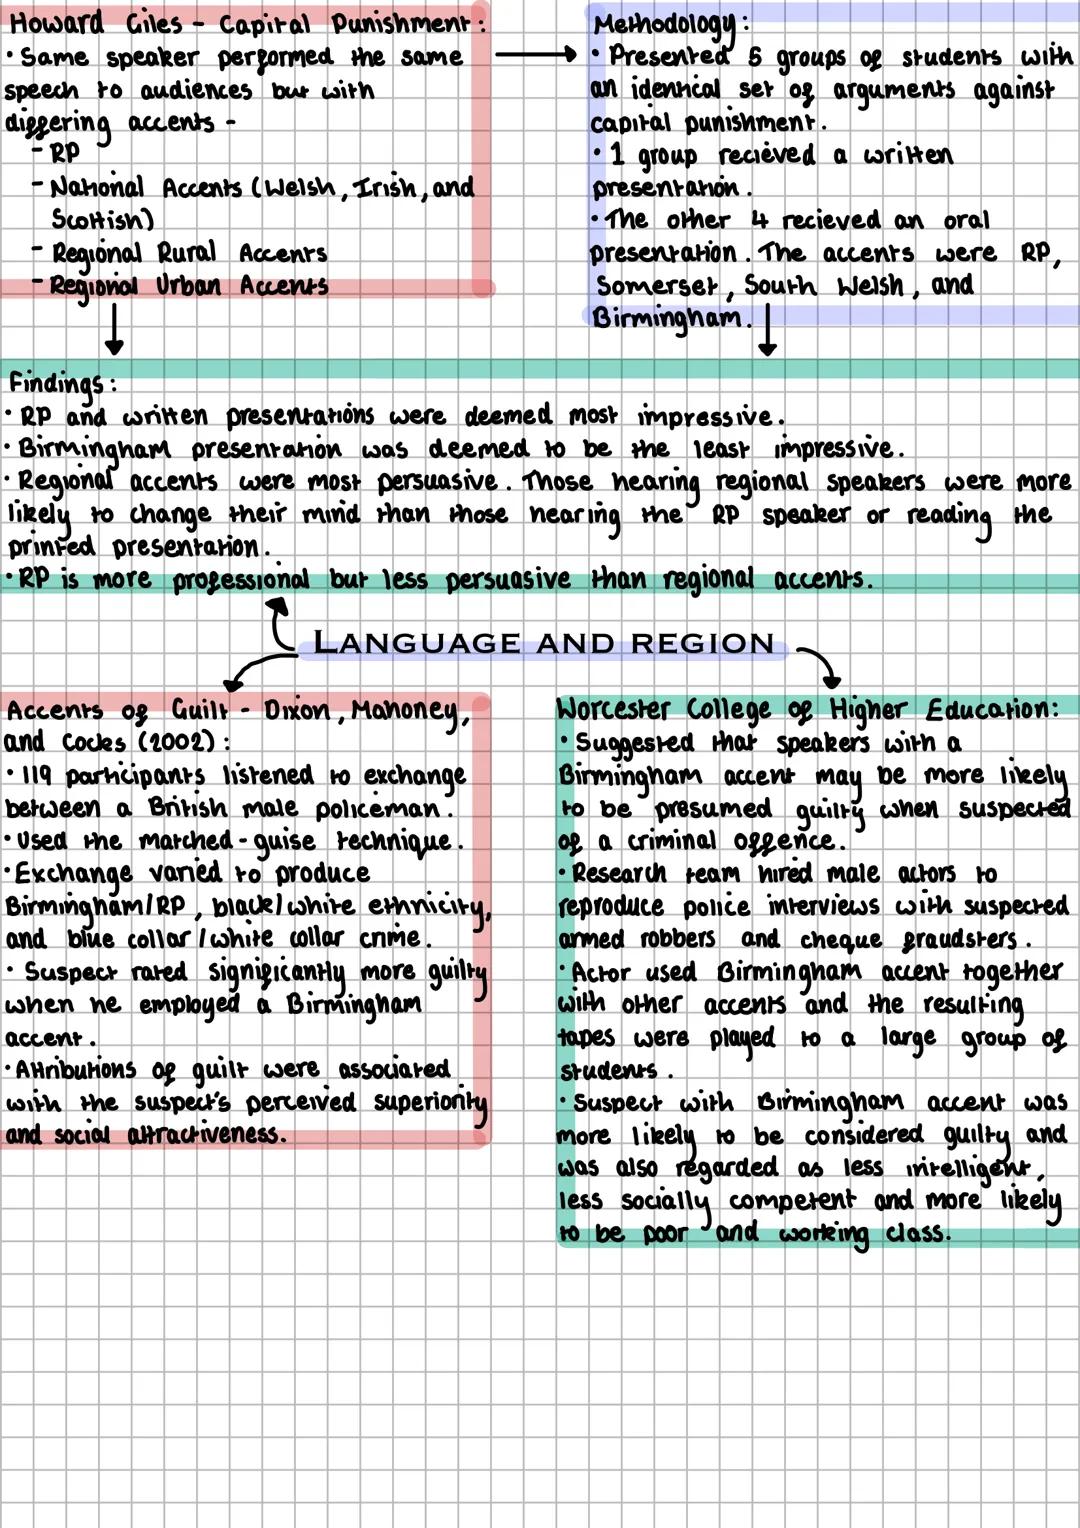 Howard Giles - Capital Punishment:
• Same speaker performed the same
speech to audiences but with
differing accents -
- RP
- National Accents (Welsh, Irish, and
Scottish)
- Regional Rural Accents
- Regional Urban Accents
Methodology:
• Presented 5 groups of students with
an identical set of arguments against
capital punishment.
• 1 group recieved a written
presentation.
• The other 4 recieved an oral
presentation. The accents were RP,
Somerset, South Welsh, and
Birmingham.
Findings:
• RP and written presentations were deemed most impressive.
• Birmingham presentation was deemed to be the least impressive.
• Regional accents were most persuasive. Those hearing regional speakers were more
likely to change their mind than those hearing the RP speaker or reading the
printed presentation.
• RP is more professional but less persuasive than regional accents.
LANGUAGE AND REGION
Accents of Guilt - Dixon, Mahoney,
and Cocks (2002):
• 119 participants listened to exchange
between a British male policeman.
• Used the matched-guise technique.
• Exchange varied to produce
Birmingham/RP, black/white ethnicity,
and blue collar/white collar crime.
• Suspect rated significantly more guilty
when he employed a Birmingham
accent.
• Attributions of guilt were associated
with the suspect's perceived superiority
and social attractiveness.
Worcester College of Higher Education:
• Suggested that speakers with a
Birmingham accent may be more likely
to be presumed guilty when suspected
of a criminal offence.
• Research team hired male actors to
reproduce police interviews with suspected
armed robbers and cheque fraudsters.
• Actor used Birmingham accent together
with other accents and the resulting
tapes were played to a large group of
students.
• Suspect with Birmingham accent was
more likely to be considered guilty and
was also regarded as less intelligent,
less socially competent and more likely
to be poor and working class.